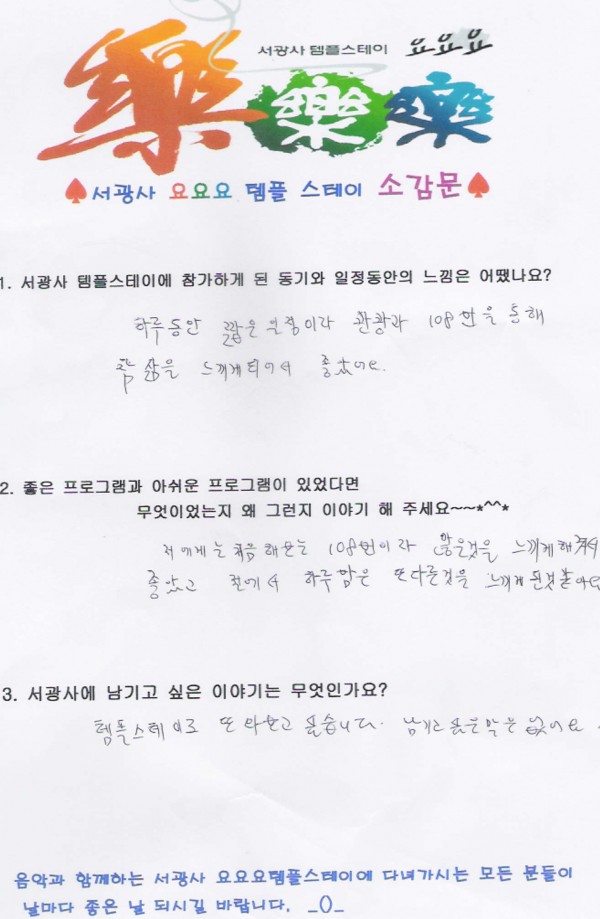 서광사 템플스테이 요요요
樂 樂 樂
♠서광사 요요요 템플 스테이 소감문♠
1. 서광사 템플스테이에 참가하게 된 동기와 일정동안의 느낌은 어땠나요?
하루동안 짧은 일정이라 관광과 108번을 통해
참 삶을 느끼게되어서 좋았어요.
2. 좋은 프로그램과 아쉬운 프로그램이 있었다면
무엇이었는지 왜 그런지 이야기 해 주세요~~*^^*
저에게는 처음해보는 108번이라 많은것을 느끼게해줘서
좋았고 절에서 하루밤은 또다른것을 느끼게된것같아요
3. 서광사에 남기고 싶은 이야기는 무엇인가요?
템플스테이로 또 와보고 싶습니다. 남기고 싶은말은 없어요.
음악과 함께하는 서광사 요요요템플스테이에 다녀가시는 모든 분들이
날마다 좋은 날 되시길 바랍니다. _()_